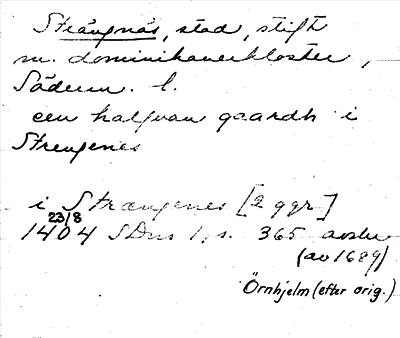 Strängnäs, stad, stift
m. dominikanerkloster,
Söderm. l.
een halfwan gaardh i
Strengenes
i Strængenes [2 ggr]
23/8
1404 SDns 1, s. 365 avskr
(av 1689)
Örnhjelm (efter orig.)